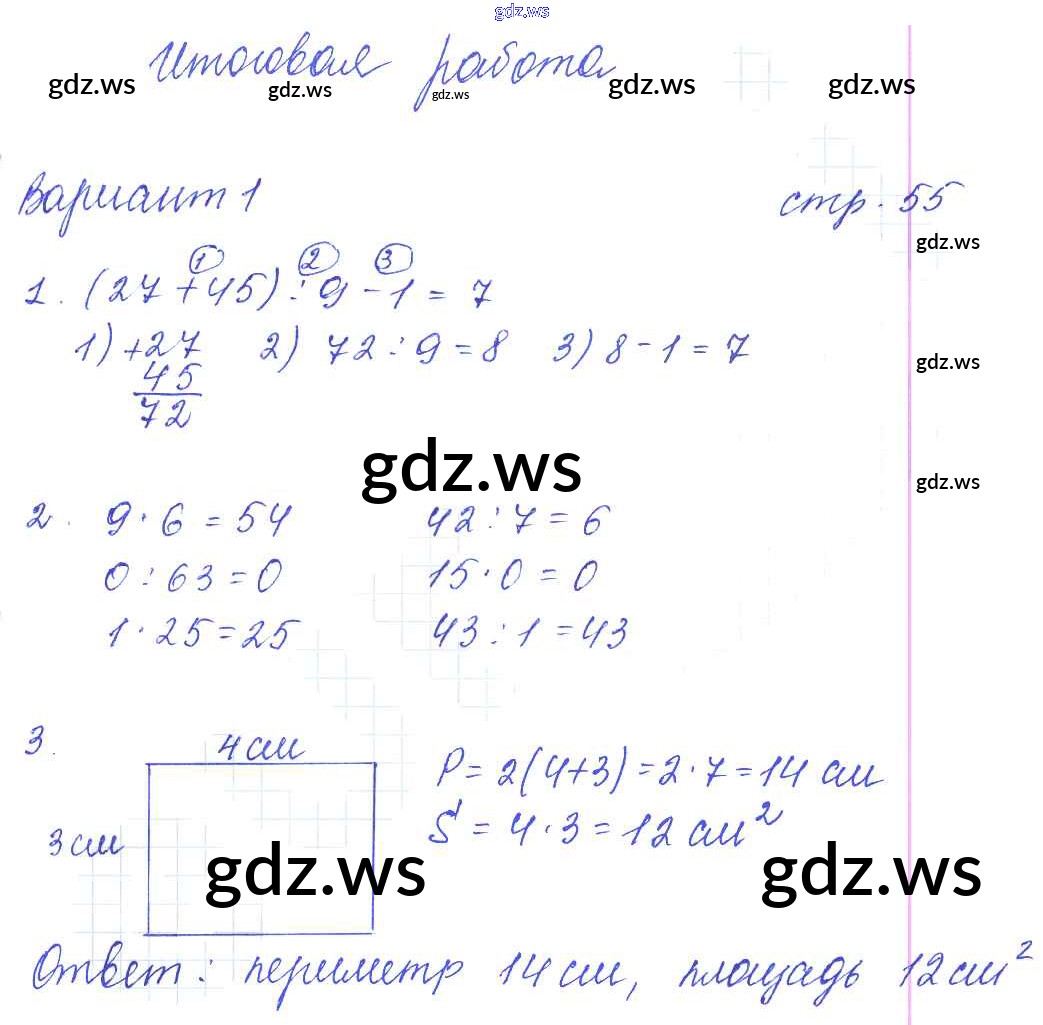 gdz.ws
Итоговая работа
gdz.ws gdz.ws gdz.ws gdz.ws gdz.ws
Вариант 1 стр. 55
gdz.ws
1 2 3
1. (27 + 45) : 9 - 1 = 7
1) +27 2) 72 : 9 = 8 3) 8 - 1 = 7
gdz.ws
45
72
gdz.ws
gdz.ws
2. 9 · 6 = 54 42 : 7 = 6
0 : 63 = 0 15 · 0 = 0
1 · 25 = 25 43 : 1 = 43
3. 4 см
P = 2(4+3) = 2 · 7 = 14 см
3 см S = 4 · 3 = 12 см²
gdz.ws gdz.ws
Ответ: периметр 14 см, площадь 12 см²